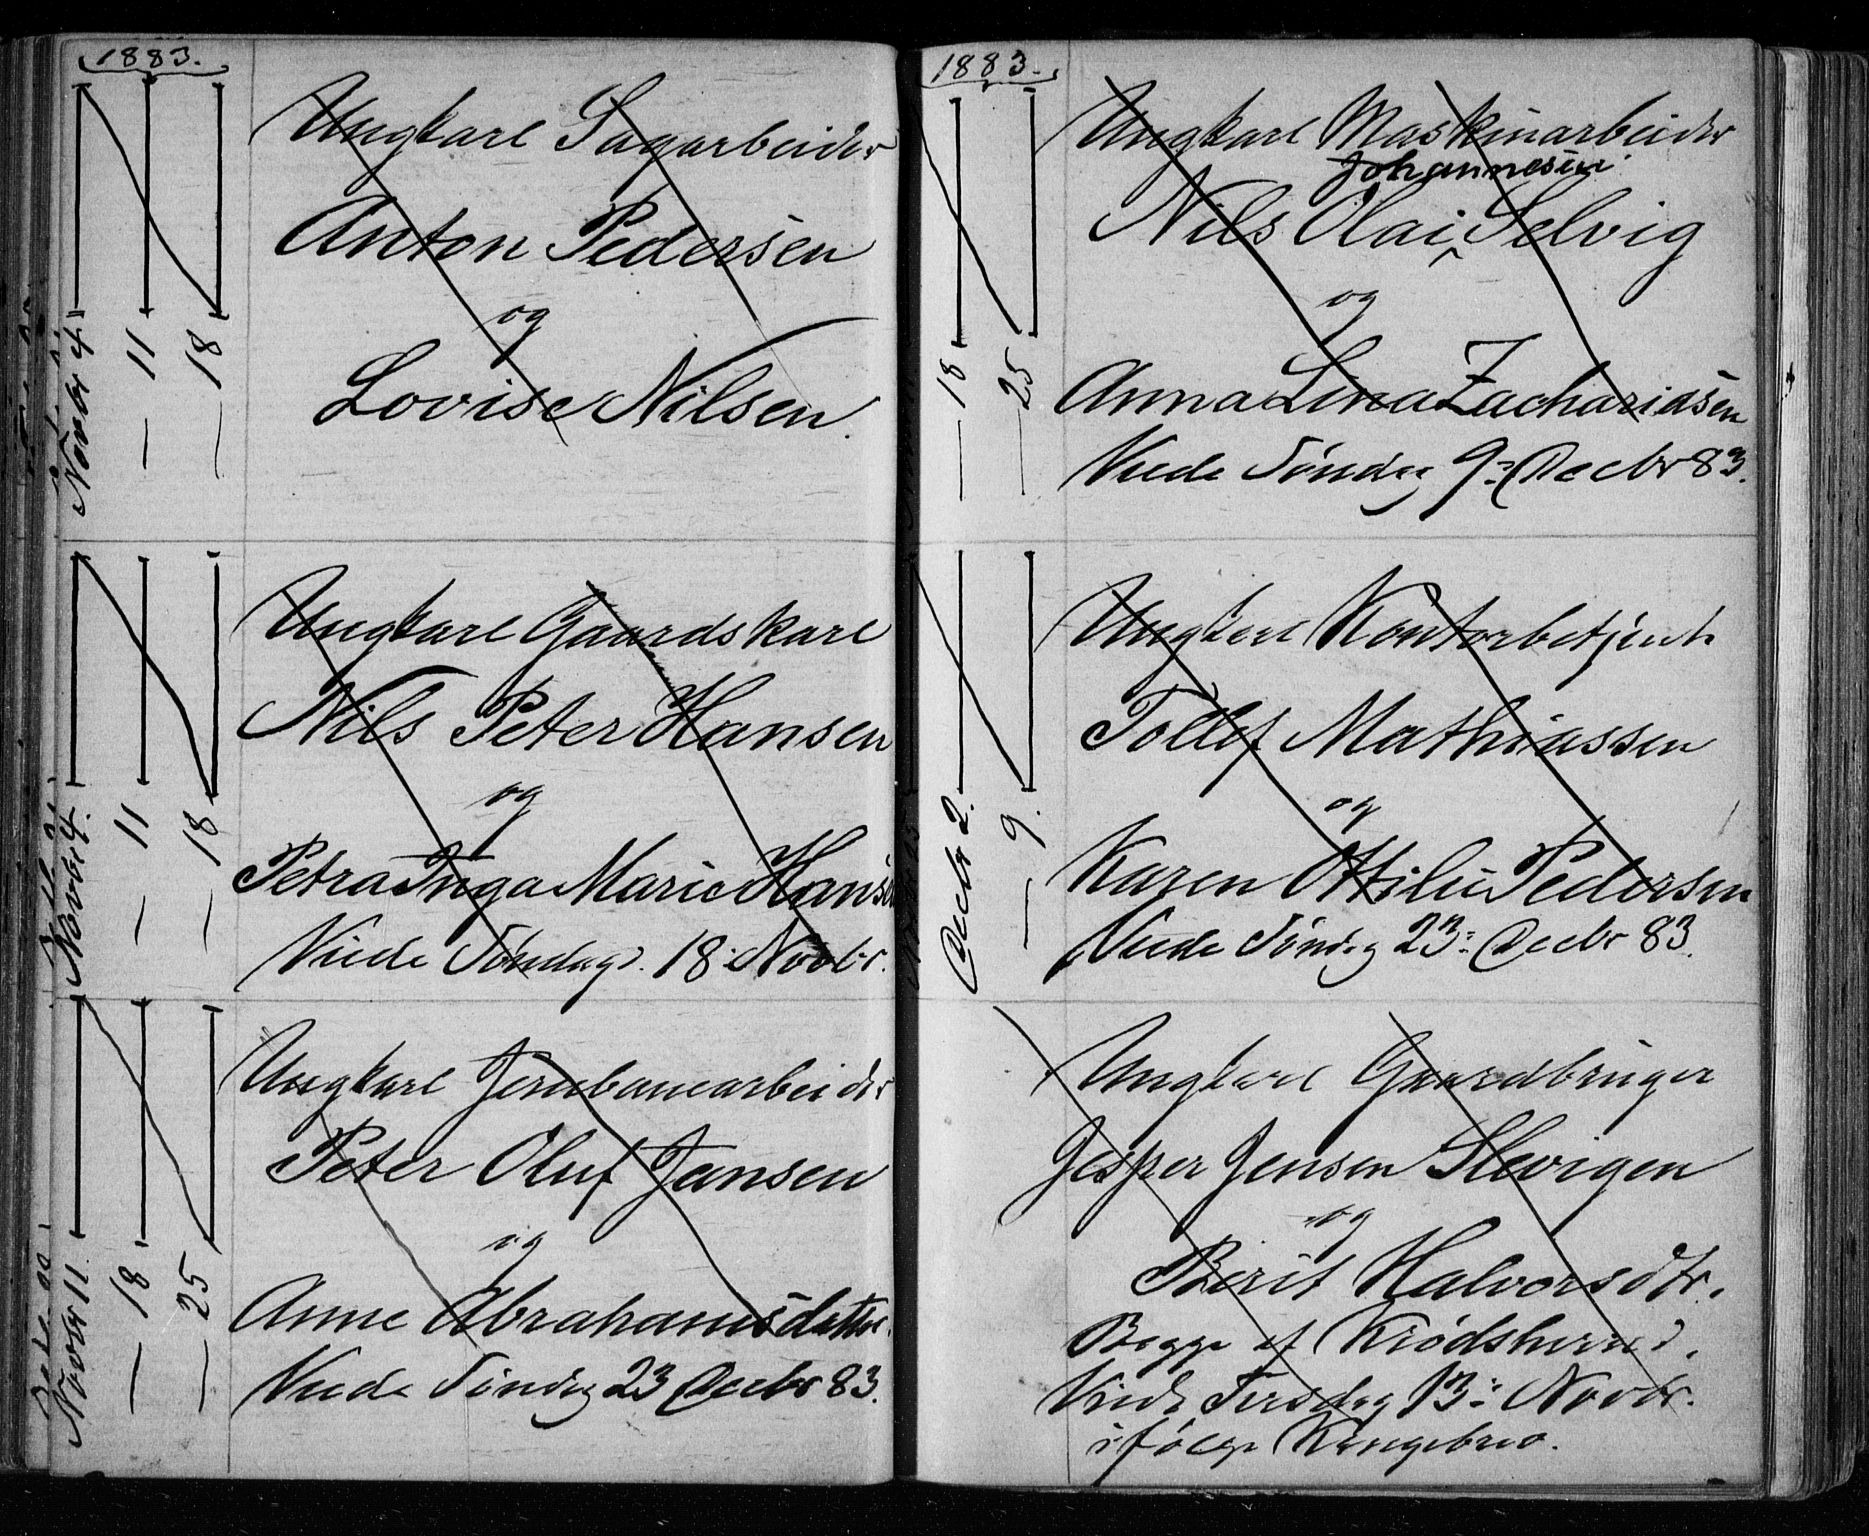 1883.
Novbr 4
— 11
— 18
Ungkarl Sagarbeider
Anton Pedersen
og
Lovise Nilsen.
Novbr 4.
— 11
— 18
Ungkarl Gaardskarl
Nils Peter Hansen
og
Petra Inga Marie Hansen
Viede Søndag d. 18: Novbr.
Novbr 11.
— 18
— 25
Ungkarl Jernbanearbeider
Peter Oluf Jansen
og
Anne Abrahamsdatter.
Viede Søndag 23 Decbr 83.
1883.
— 18
— 25
Ungkarl Maskinarbeider
Johannesen
Nils Olai Selvig
og
Anna Lina Zachariasen
Viede Søndag 9: Decbr 83.
Decbr 2.
— 9.
Ungkarl Kontorbetjent
Tollef Mathiassen
og
Karen Ottilie Pedersen
Viede Søndag 23: Decbr 83.
Ungkarl Gaardbruger
Jesper Jensen Slevigen
og
Berit Halvorsdtr.
Begge af Krødsherred.
Viede Tirsdag 13: Novbr.
ifølge Kongebrev.